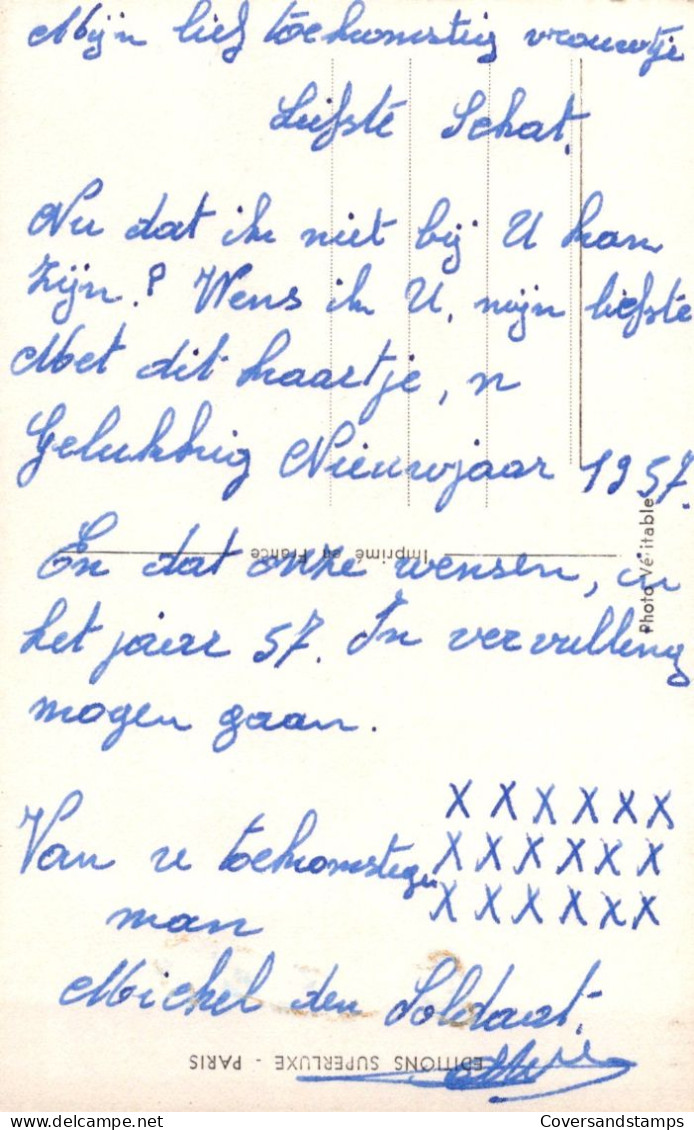 Mijn lief toekomstig vrouwtje
Liefste Schat,
Nu dat ik niet bij U kan
zijn? Wens ik U, mijn liefste
Met dit kaartje, 'n
Gelukkig Nieuwjaar 1957.
En dat onze wensen, in
het jaar 57. In vervulling
mogen gaan.
X X X X X X
X X X X X X
X X X X X X
Van u toekomstige
man
Michel den Soldaat.
Imprimé en France
Photo Véritable
EDITIONS SUPERLUXE - PARIS
Coversandstamps.com